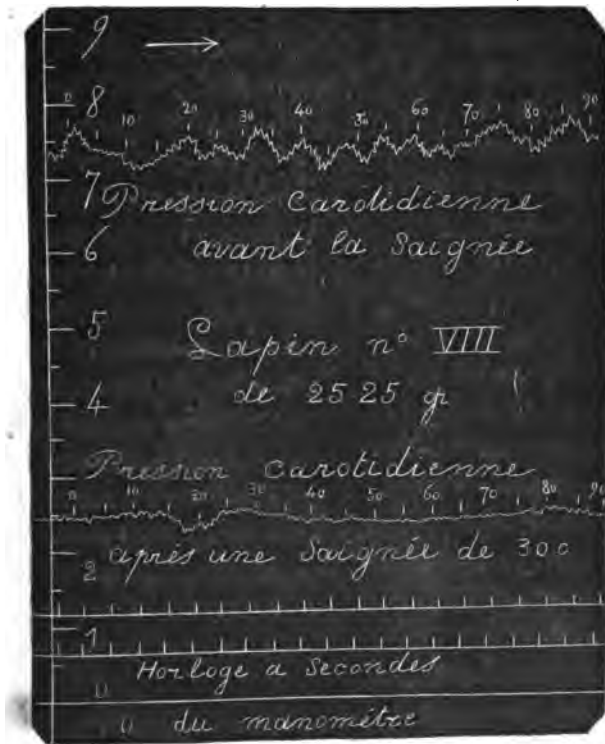 9
8
0 10 20 30 40 50 60 70 80 90
7 Pression Carotidienne
6 avant la Saignée
5 Lapin n° VIIII
4 de 2525 gr
Pression carotidienne
0 10 20 30 40 50 60 70 80 90
2 après une Saignée de 30 c
1
Horloge a Secondes
0
0 du manométre